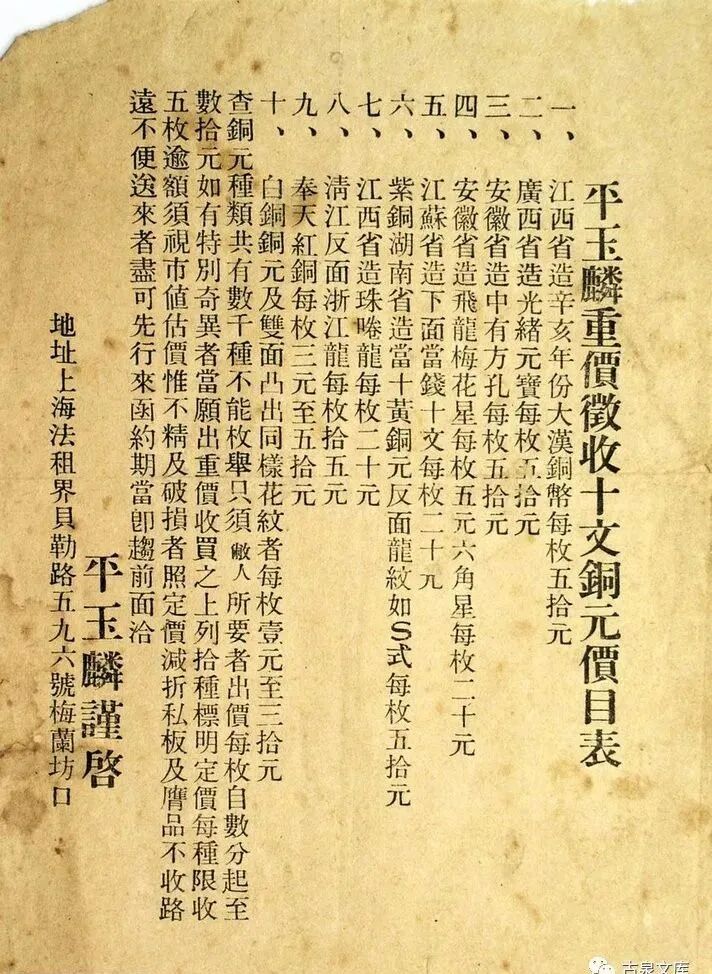 平玉麟重價徵收十文銅元價目表
一、江西省造辛亥年份大漢銅幣每枚五拾元
二、廣西省造光緒元寶每枚五拾元
三、安徽省造中有方孔每枚五拾元
四、安徽省造飛龍梅花星每枚五元六角星每枚二十元
五、江蘇省造下面當錢十文每枚二十元
六、紫銅湖南省造當十黃銅元反面龍紋如S式每枚五拾元
七、江西省造珠啳龍每枚二十元
八、清江反面浙江龍每枚拾五元
九、奉天紅銅每枚三元至五拾元
十、白銅銅元及雙面凸出同樣花紋者每枚壹元至三拾元
查銅元種類共有數千種不能枚舉只須敝人所要者出價每枚自數分起至
數拾元如有特別奇異者當願出重價收買之上列拾種標明定價每種限收
五枚逾額須視市値估價惟不精及破損者照定價減折私板及贋品不收路
遠不便送來者盡可先行來函約期當卽趨前面洽
平玉麟謹啓
地址上海法租界貝勒路五九六號梅蘭坊口
古泉文库